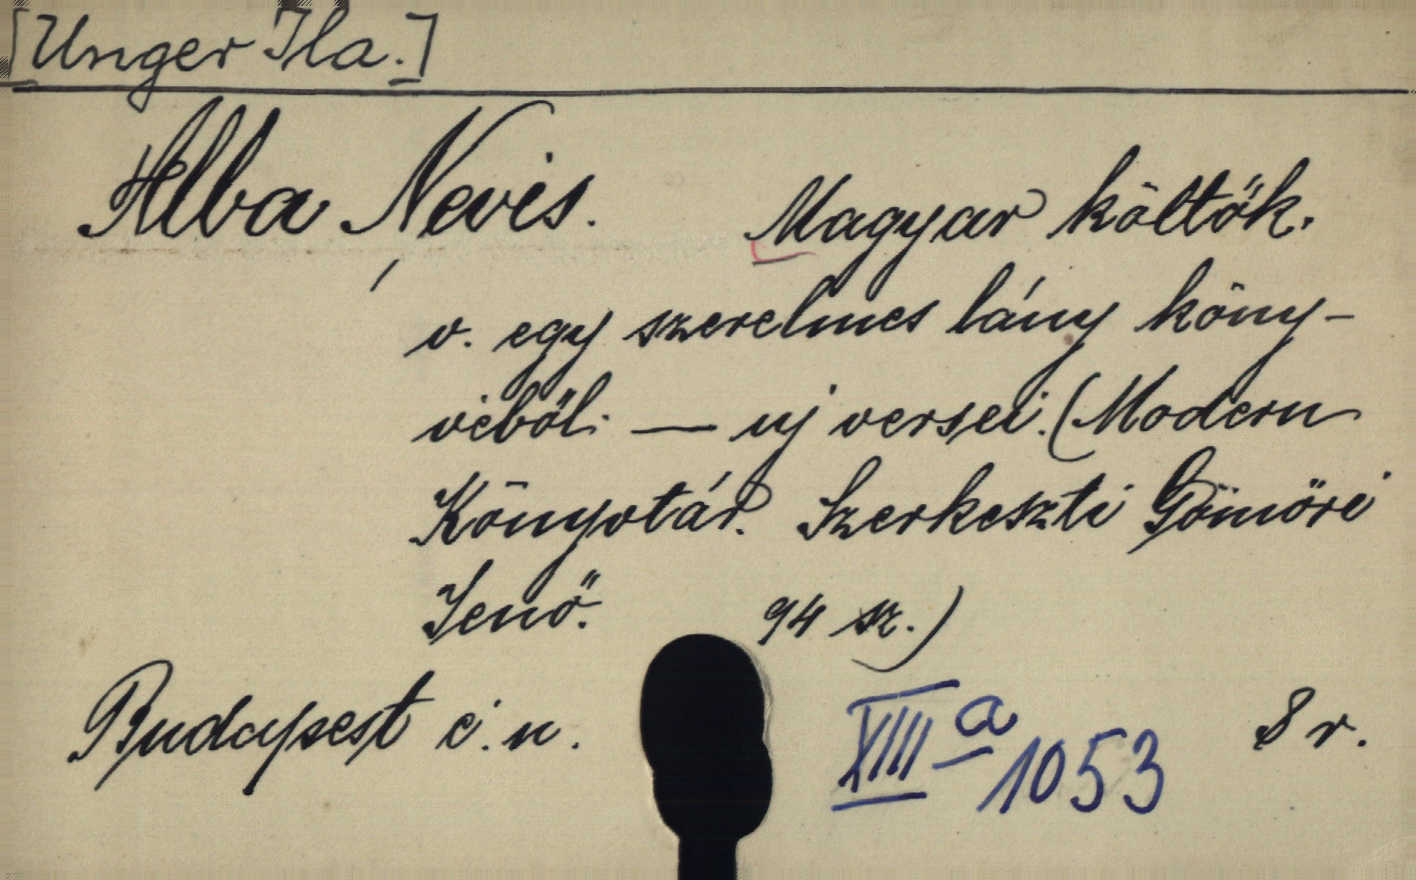 [Unger Ila.]
Alba Nevis. Magyar költők.
v. egy szerelmes lány köny-
véből. — uj versei. (Modern
Könyvtár. Szerkeszti Gömöri
Jenő. 94 sz.)
Budapest é. n. XIII a 1053 8 r.